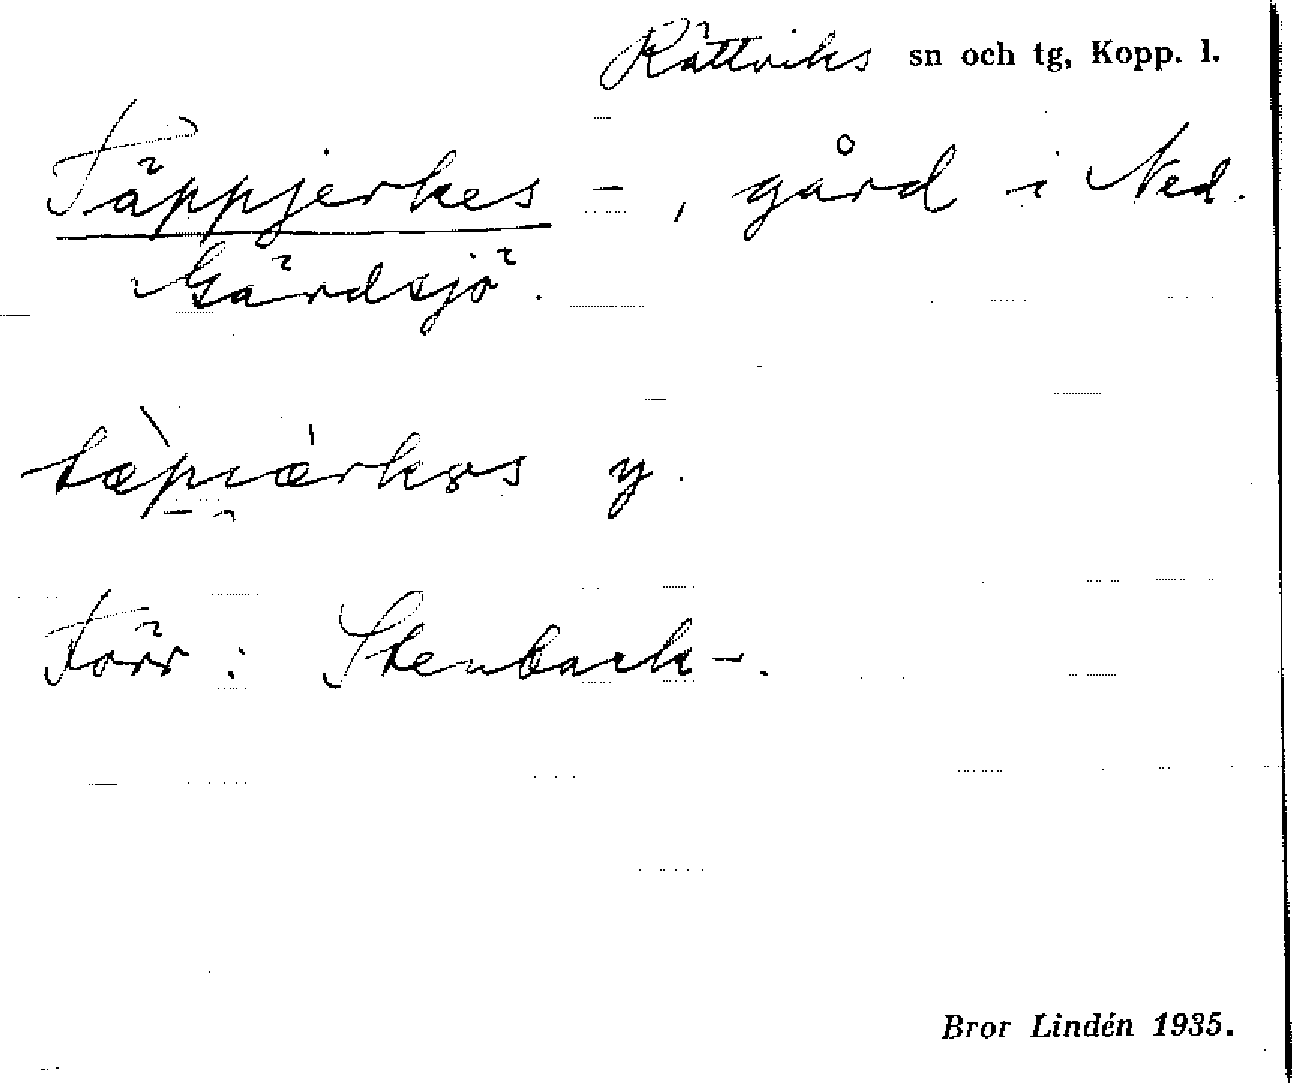 Rättviks sn och tg, Kopp. l.
Täppjerkes - , gård i Ned.
Gärdsjö.
tæ̀pıærkəs y.
Förr : Stenback-.
Bror Lindén 1935.